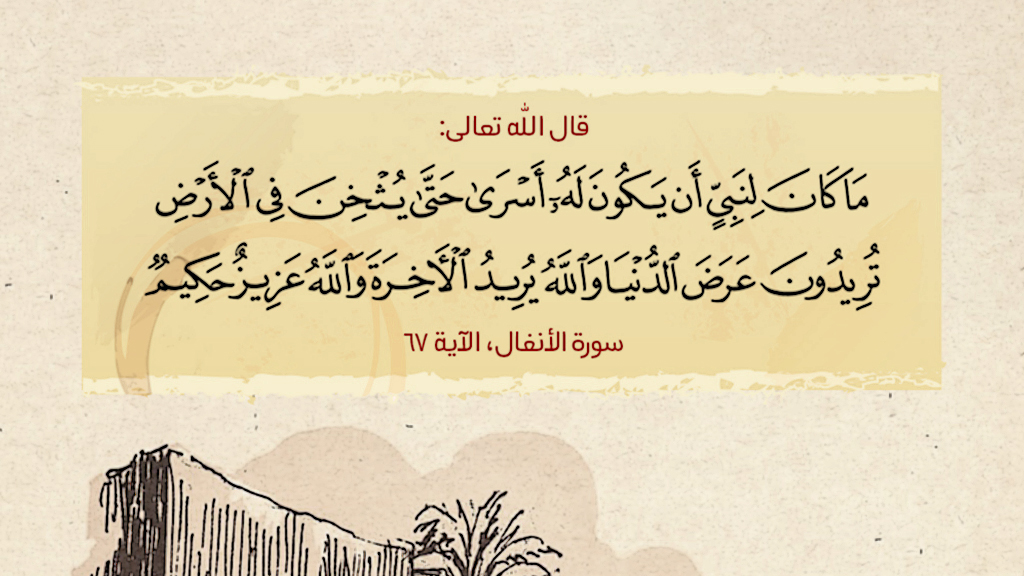 قال الله تعالى:
مَا كَانَ لِنَبِيٍّ أَن يَكُونَ لَهُۥٓ أَسْرَىٰ حَتَّىٰ يُثْخِنَ فِى ٱلْأَرْضِ
تُرِيدُونَ عَرَضَ ٱلدُّنْيَا وَٱللَّهُ يُرِيدُ ٱلْأَخِرَةَ وَٱللَّهُ عَزِيزٌ حَكِيمٌ
سورة الأنفال، الآية ٦٧